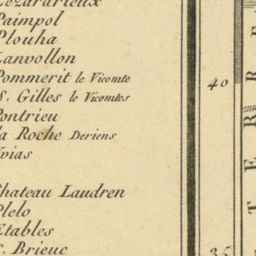 Lezardrieux
Paimpol
Plouha
Lanvollon
Pommerit le Vicomte
S. Gilles le Vicomtes
Pontrieu
la Roche Deriens
ivias
Chateau Laudren
Plelo
Etables
S. Brieuc
40
35
T E R R E